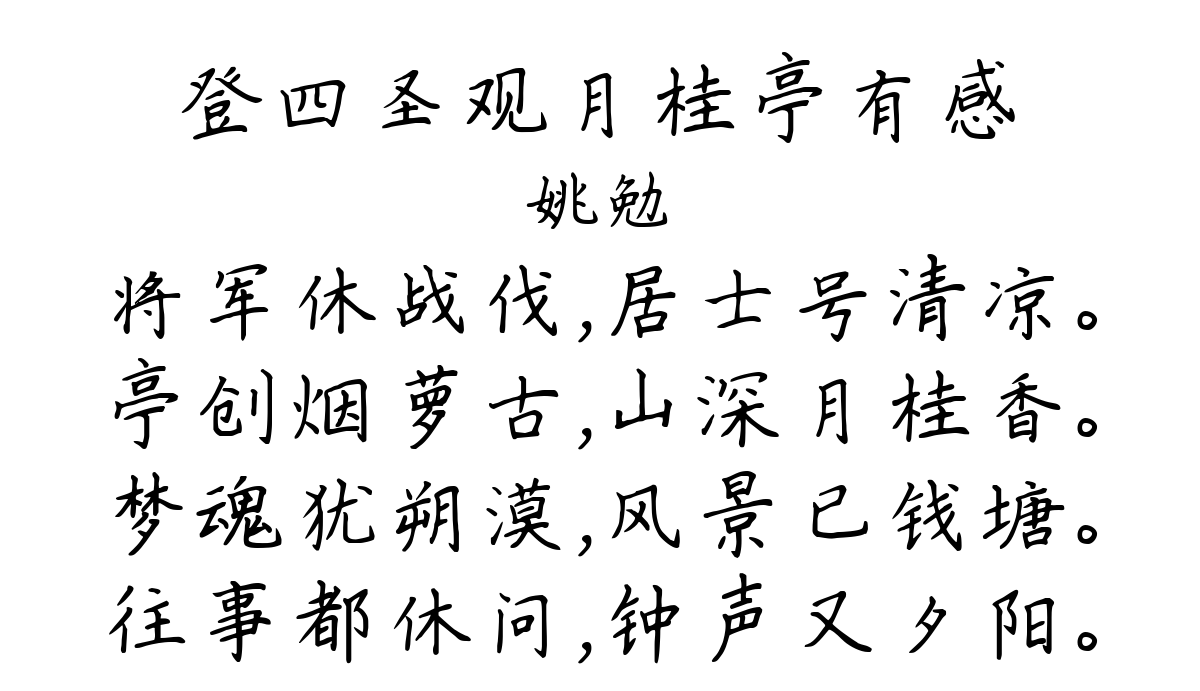 登四圣观月桂亭有感
姚勉
将军休战伐,居士号清凉。
亭创烟萝古,山深月桂香。
梦魂犹朔漠,风景已钱塘。
往事都休问,钟声又夕阳。